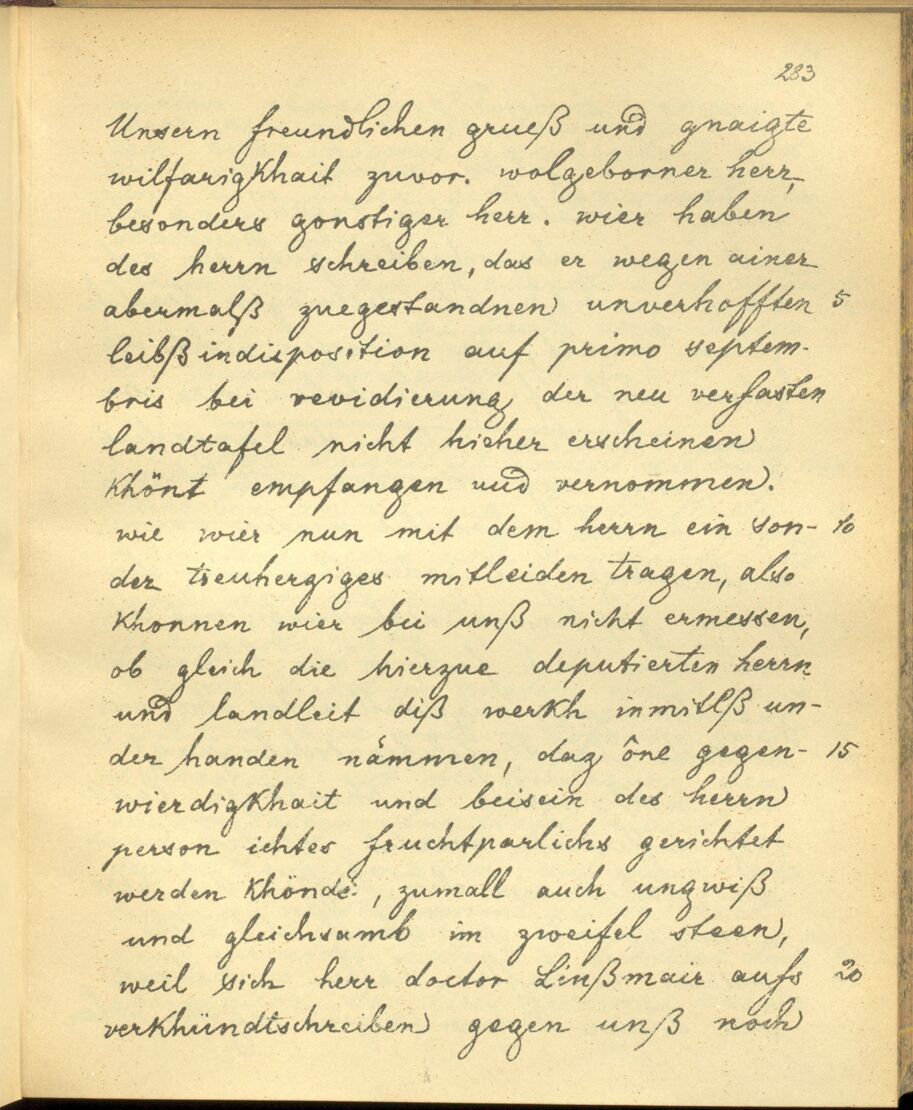 283
Unsern freundlichen grueß und gnaigte
wilfarigkhait zuvor. wolgeborner herr,
besonders gonstiger herr. wier haben
des herrn schreiben, das er wegen ainer
abermalß zuegestandnen unverhofften 5
leibßindisposition auf primo septem-
bris bei revidierung der neu verfasten
landtafel nicht hieher erscheinen
khönt empfangen und vernommen.
wie wier nun mit dem herrn ein son- 10
der treuhergiges mitleiden tragen, also
khonnen wier bei unß nicht ermessen,
ob gleich die hierzue deputierten herrn
und landleit diß werkh inmitlß un-
der handen nämmen, daz ône gegen- 15
wierdigkhait und beisein des herrn
person ichtes fruchtparlichs gerichtet
werden khönde, zumall auch ungwiß
und gleichsamb im zweifel steen,
weil sich herr doctor Linßmair aufs 20
verkhündtschreiben gegen unß noch